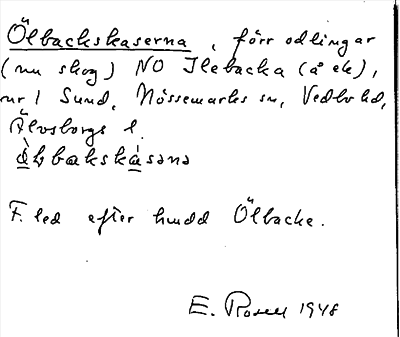 Ölbackskaserna, förr odlingar
(nu skog) NO Ilebacka (å ek),
nr 1 Sund, Nössemarks sn, Vedbo hd,
Älvsborgs l.
F. led efter hundd Ölbacke.
E. Rosell 1948